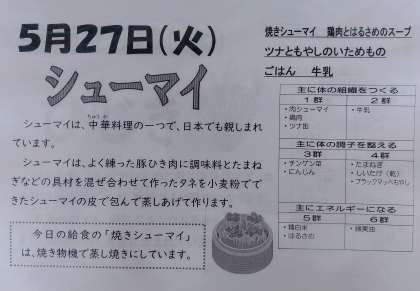 5月27日(火)
シューマイ
シューマイは、中華料理の一つで、日本でも親しまれ
ちゅうか
ています。
シューマイは、よく練った豚ひき肉に調味料とたまね
ぎなどの具材を混ぜ合わせて作ったタネを小麦粉でで
きたシューマイの皮で包んで蒸しあげて作ります。
今日の給食の「焼きシューマイ」
は、焼き物機で蒸し焼きにしています。
焼きシューマイ 鶏肉とはるさめのスープ
ツナともやしのいためもの
ごはん 牛乳
主に体の組織をつくる
1群 2群
・肉シューマイ ・牛乳
・鶏肉
・ツナ缶
主に体の調子を整える
3群 4群
・チンゲン菜 ・たまねぎ
・にんじん ・しいたけ(乾)
・ブラックマッペもやし
主にエネルギーになる
5群 6群
・精白米 ・綿実油
・はるさめ